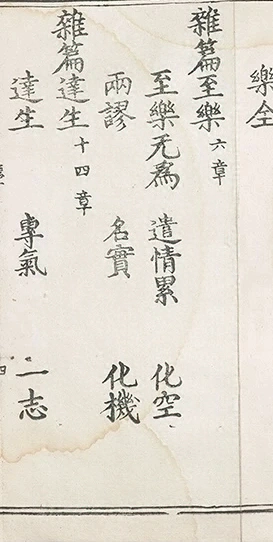 樂全
雜篇至樂六章
至樂无為 遣情累 化空
兩謬 名實 化機
雜篇達生十四章
達生 專氣 一志
四